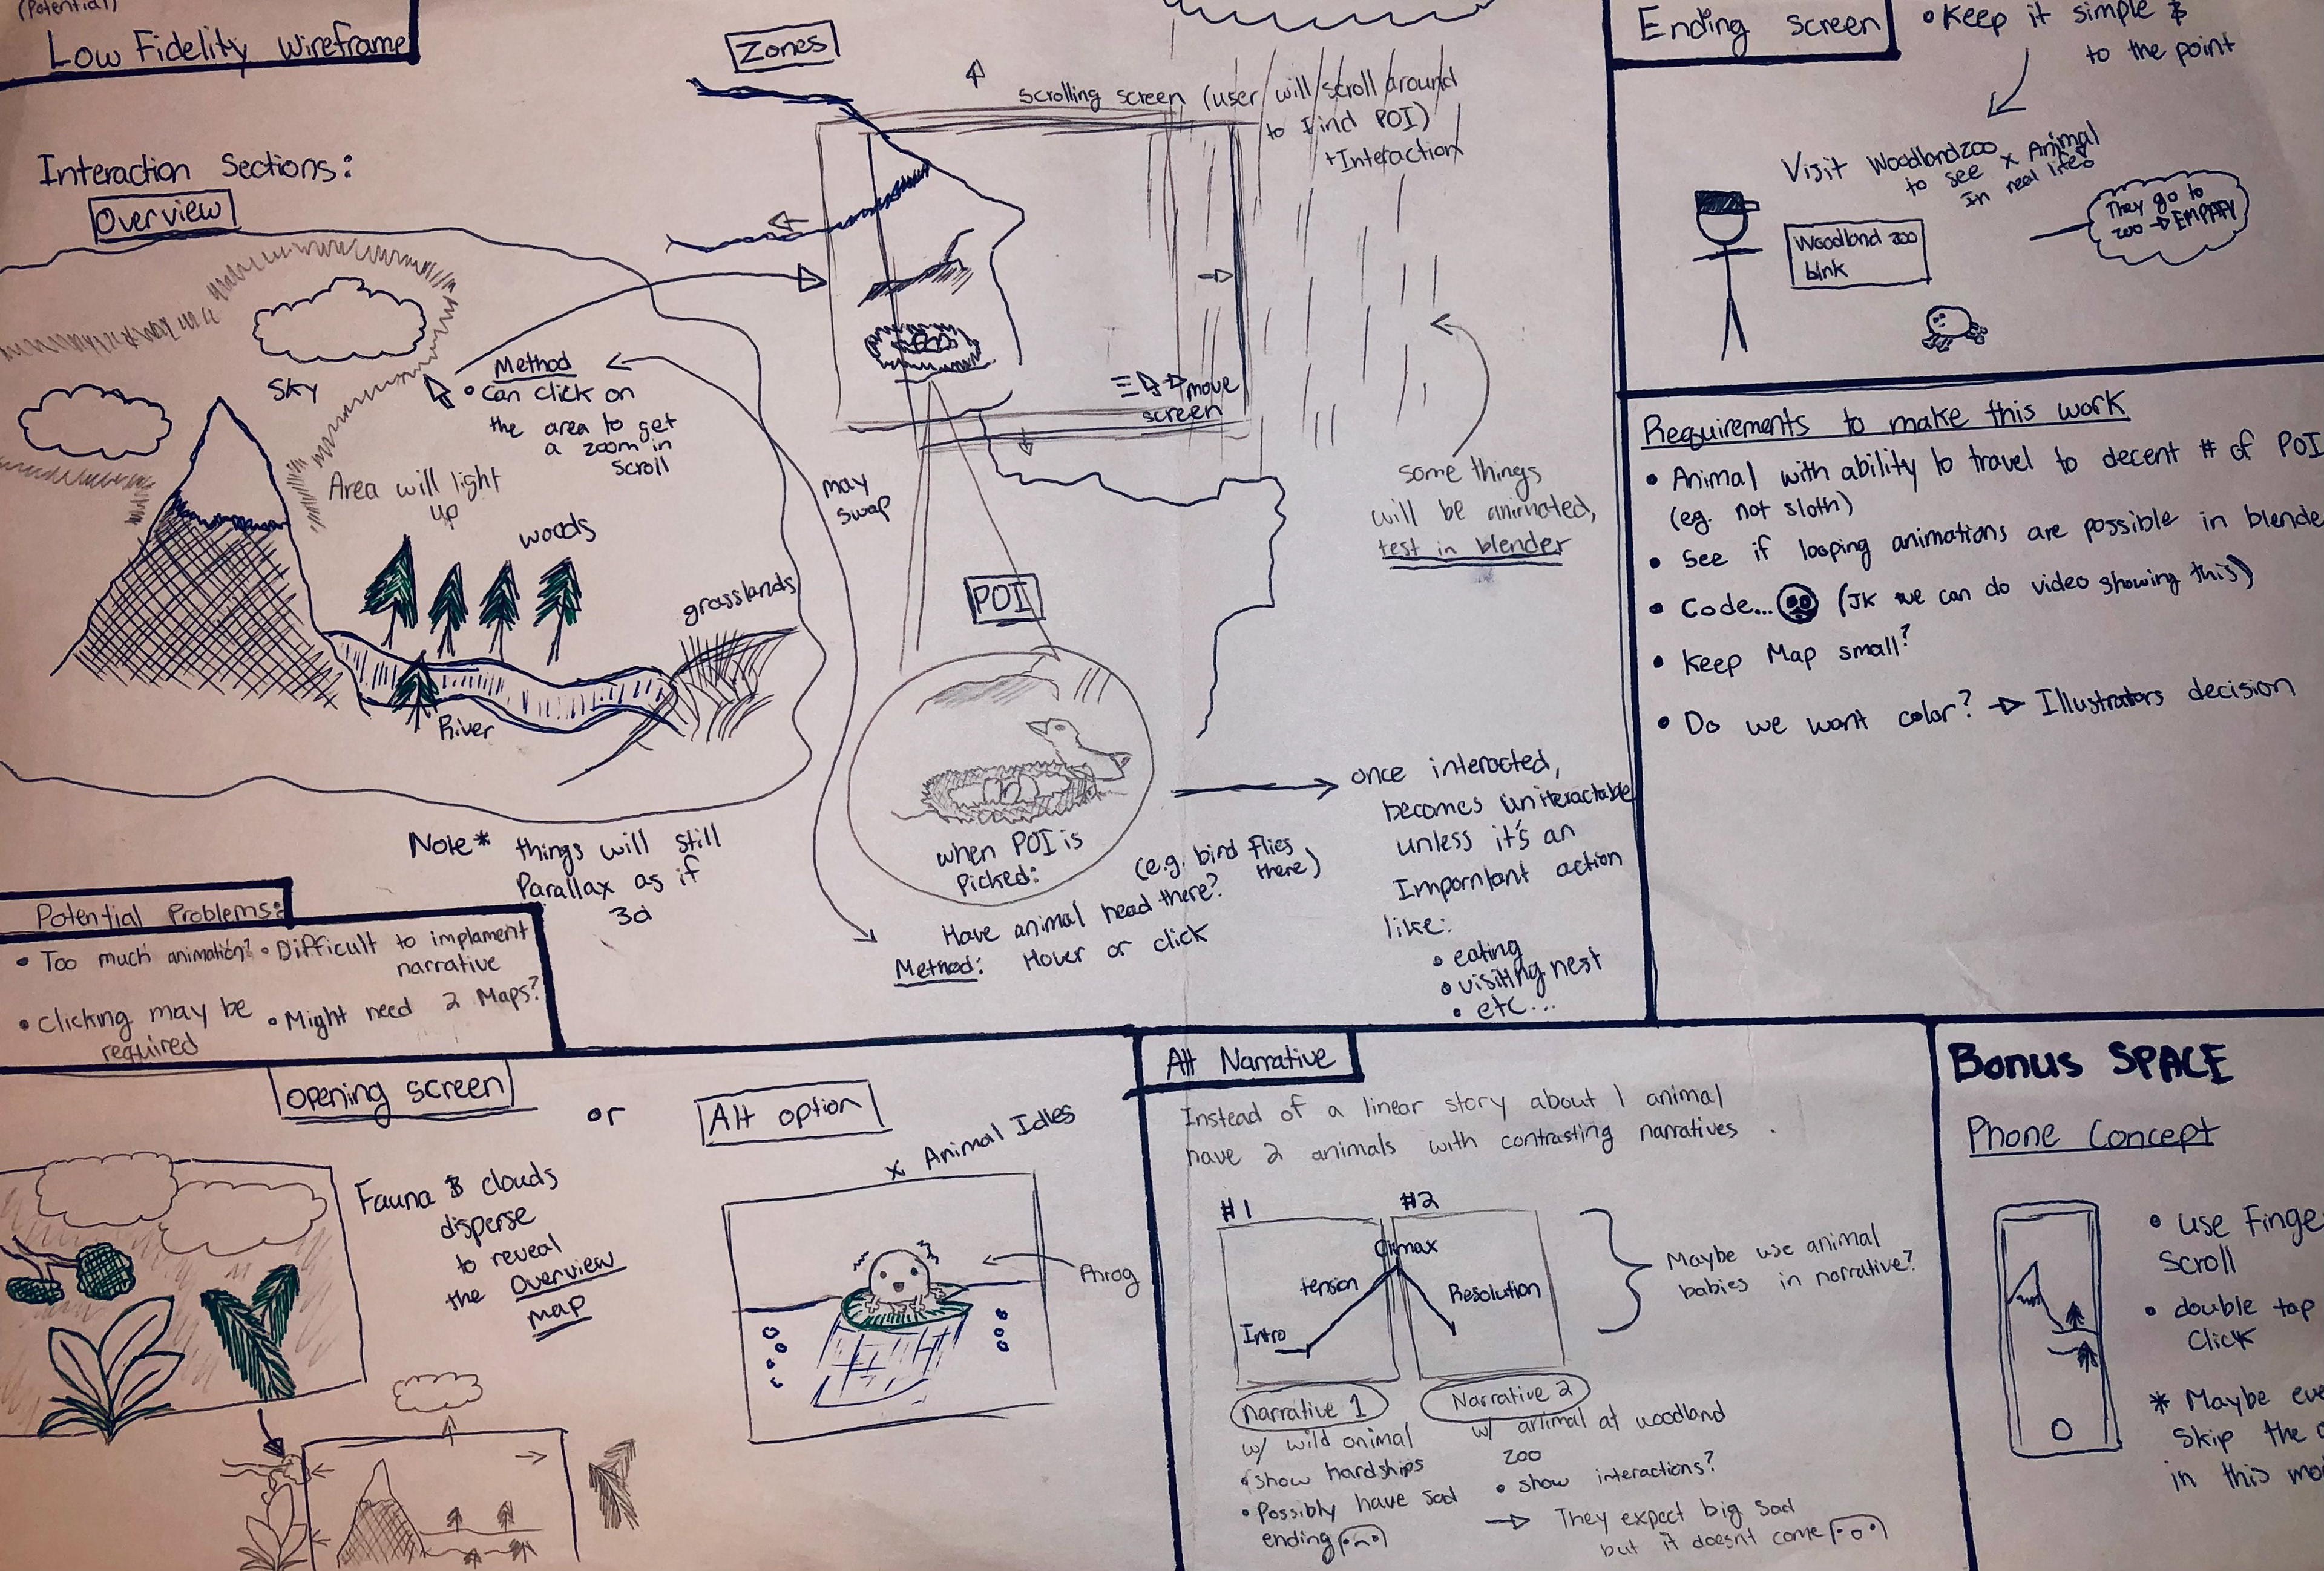 (Potential)
Low Fidelity Wireframe
Interaction Sections:
Overview
Sky
Method
• Can click on
the area to get
a zoom in
scroll
Area will light
up
woods
grasslands
River
Note* things will still
Parallax as if
3d
Zones
Scrolling screen (user will scroll around
to find POI)
+Interaction
move
screen
may
swap
some things
will be animated,
test in blender
POI
when POI is
Picked:
(e.g. bird flies
there)
Have animal head there?
Method: Hover or click
once interacted,
becomes uniteractable
unless it's an
Imporntant action
like:
• eating
• visiting nest
• etc...
Potential Problems:
• Too much animation?
• Difficult to implament
narrative
• Clicking may be
required
• Might need 2 Maps?
Ending screen
• Keep it simple &
to the point
Visit Woodland zoo
to see x Animal
In real life
They go to
zoo → EMPTY
Woodland zoo
blink
Requirements to make this work
• Animal with ability to travel to decent # of POI
(eg. not sloth)
• See if looping animations are possible in blende
• Code... (JK we can do video showing this)
• Keep Map small?
• Do we want color? → Illustrators decision
opening screen
or
Alt option
Fauna & clouds
disperse
to reveal
the Overview
map
x Animal Idles
Phrog
Alt Narrative
Instead of a linear story about 1 animal
have 2 animals with contrasting narratives.
#1
#2
Climax
tension
Resolution
Intro
Maybe use animal
babies in narrative?
Narrative 1
w/ wild animal
• show hardships
• Possibly have sad
ending
Narrative 2
w/ animal at woodland
zoo
• show interactions?
→ They expect big sad
but it doesnt come
Bonus SPACE
Phone Concept
• use Finge
Scroll
• double tap
Click
* Maybe eve
Skip the
in this mo